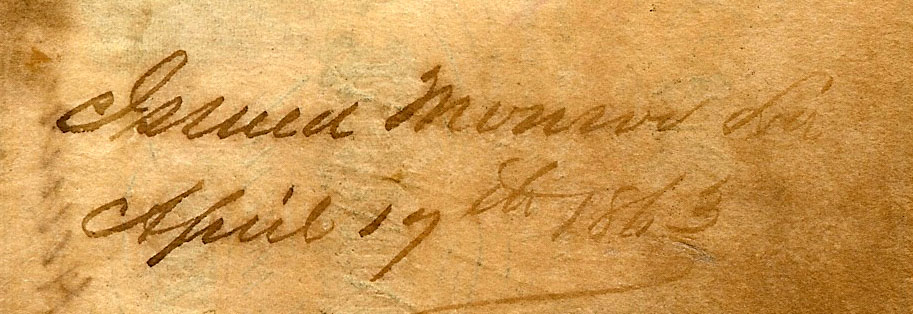 Issued Monroe
April 17th 1863